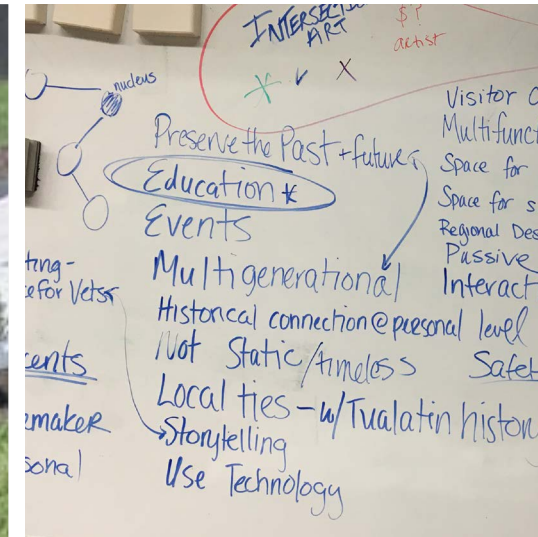 INTERSECT
ART
$?
artist
nucleus
Preserve the Past + future
Education *
Events
Multigenerational
Historical connection @ personal level
Not Static/timeless
Local ties - w/ Tualatin histor
Storytelling
Use Technology
ting -
e for Vets
ents
emaker
sonal
Visitor C
Multifunct
Space for
Space for s
Regional Des
Passive
Interact
Safet